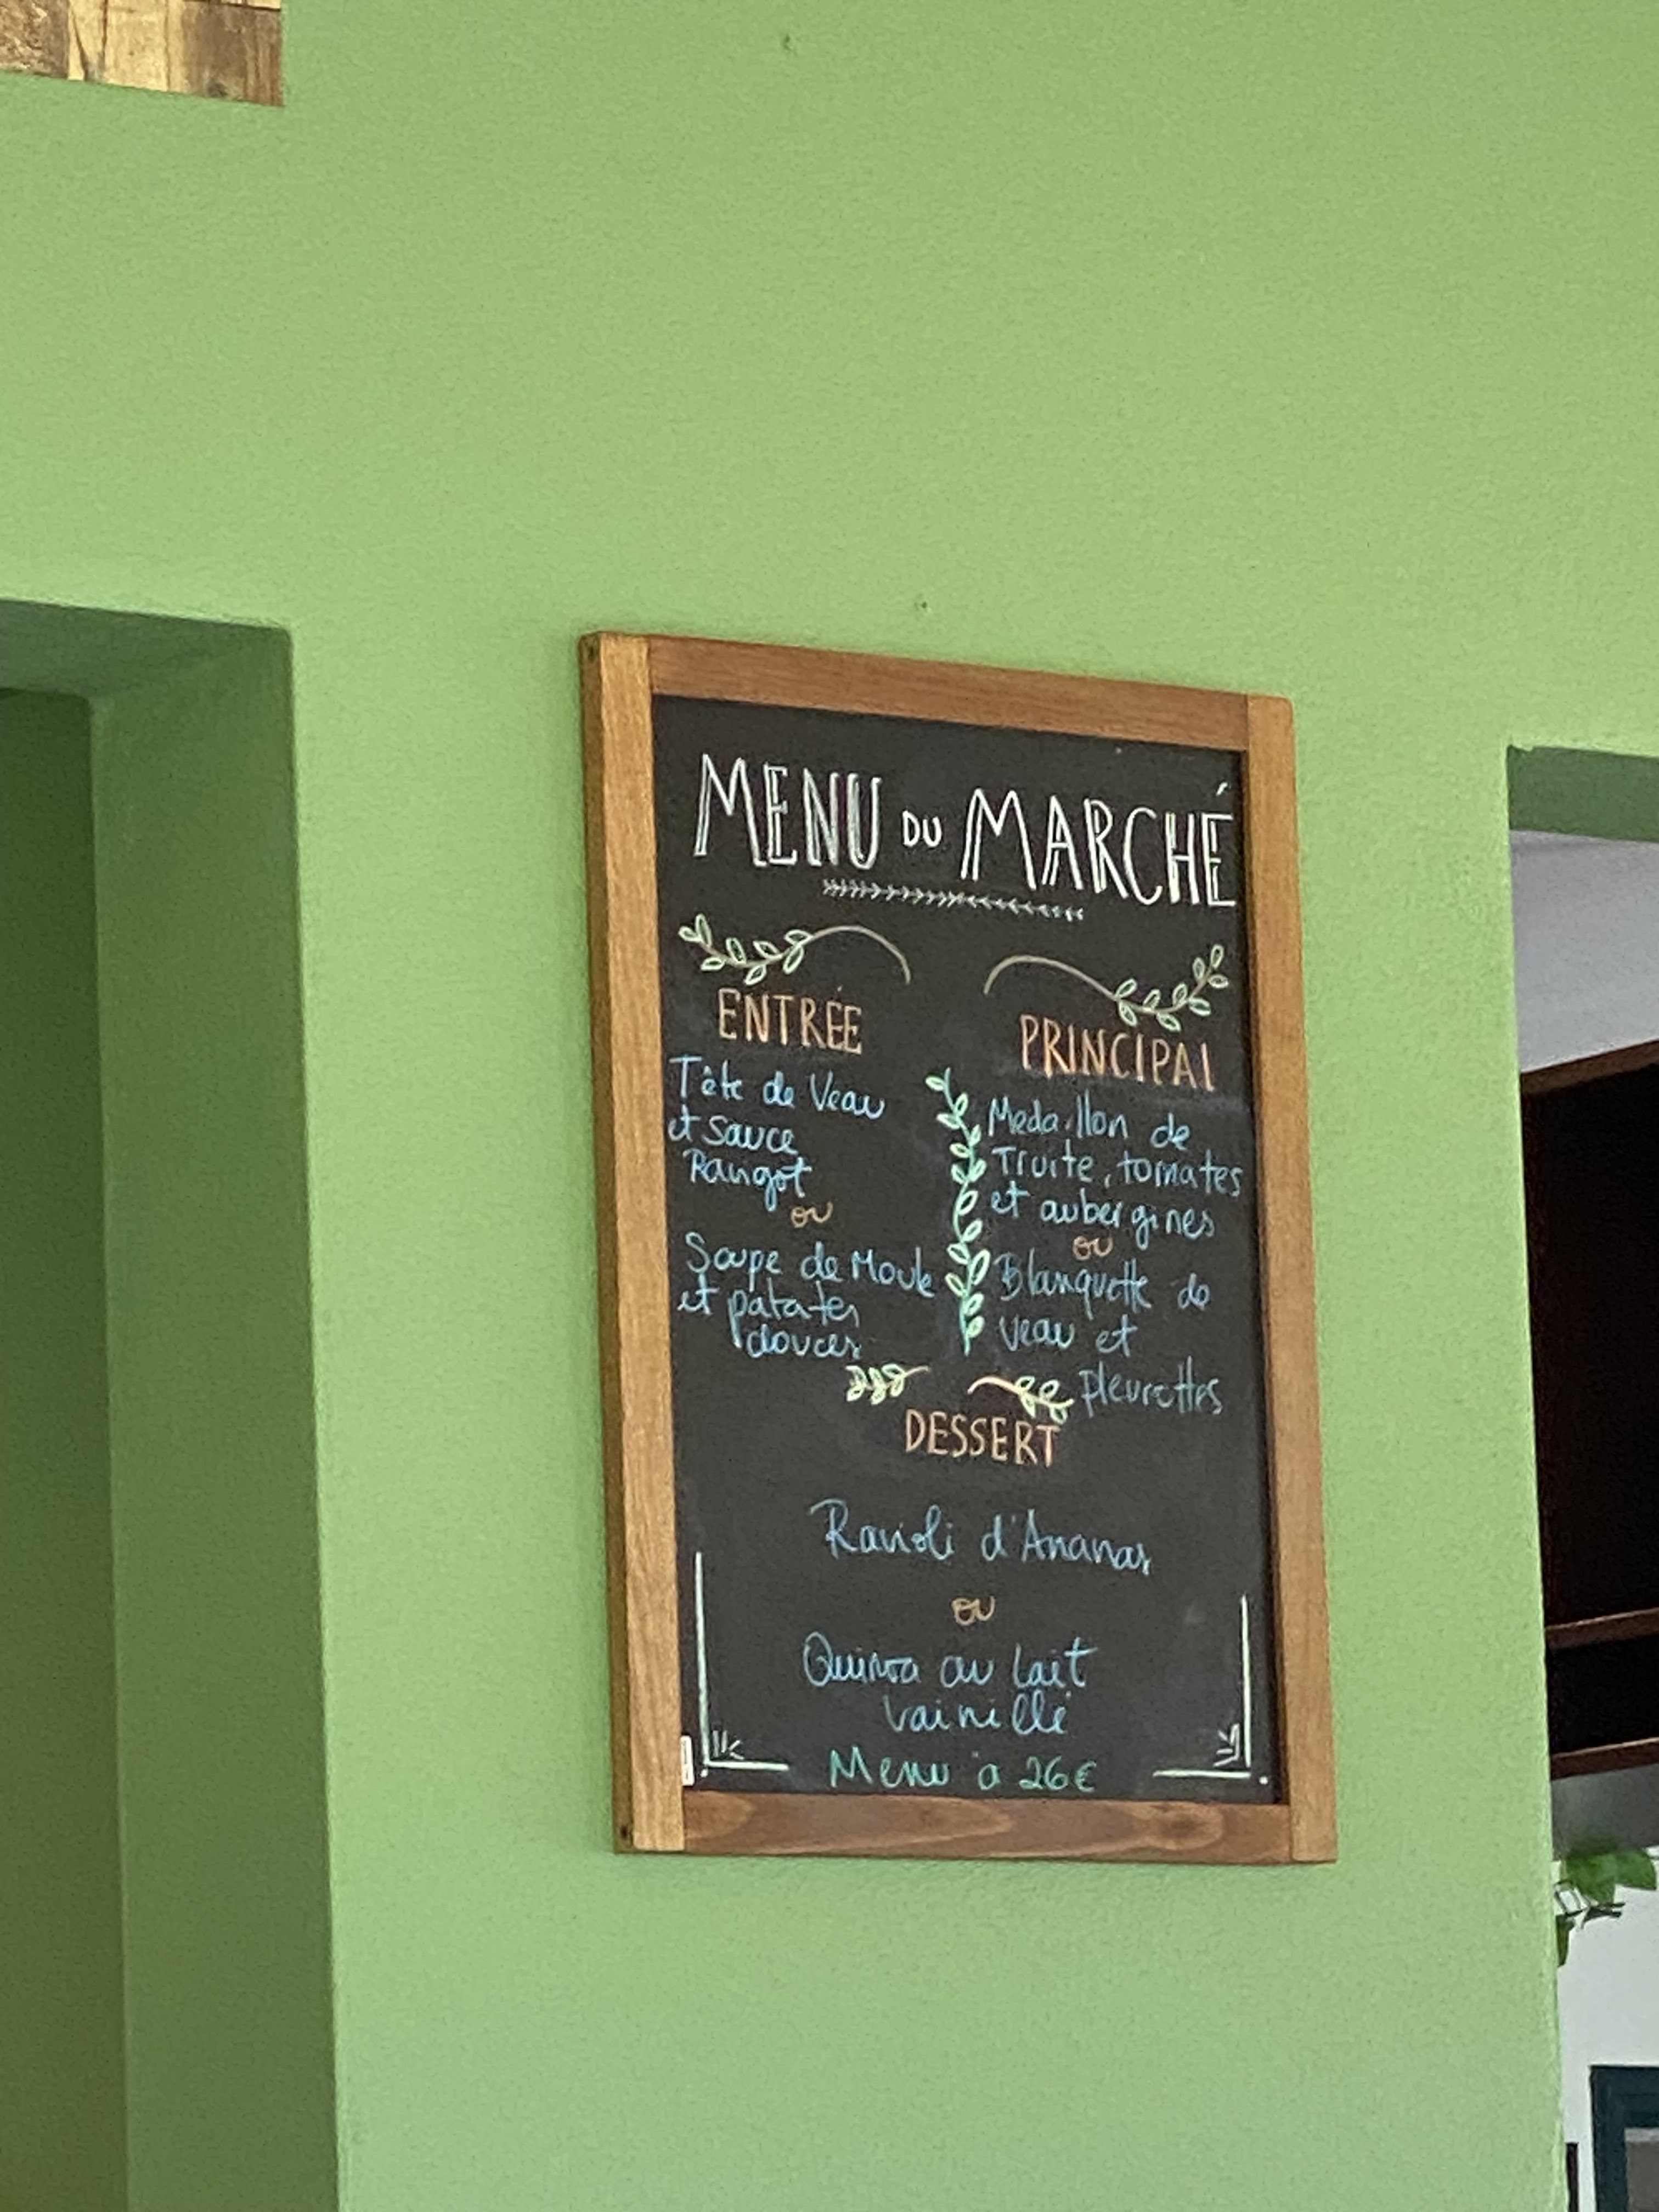 MENU DU MARCHÉ
ENTRÉE
Tête de Veau
et sauce
Raigot
ou
Soupe de Moule
et patates
douces
PRINCIPAL
Medaillon de
Truite, tomates
et aubergines
ou
Blanquette de
veau et
pleurettes
DESSERT
Ravioli d'Ananas
ou
Quinoa au lait
vainillé
Menu à 26€